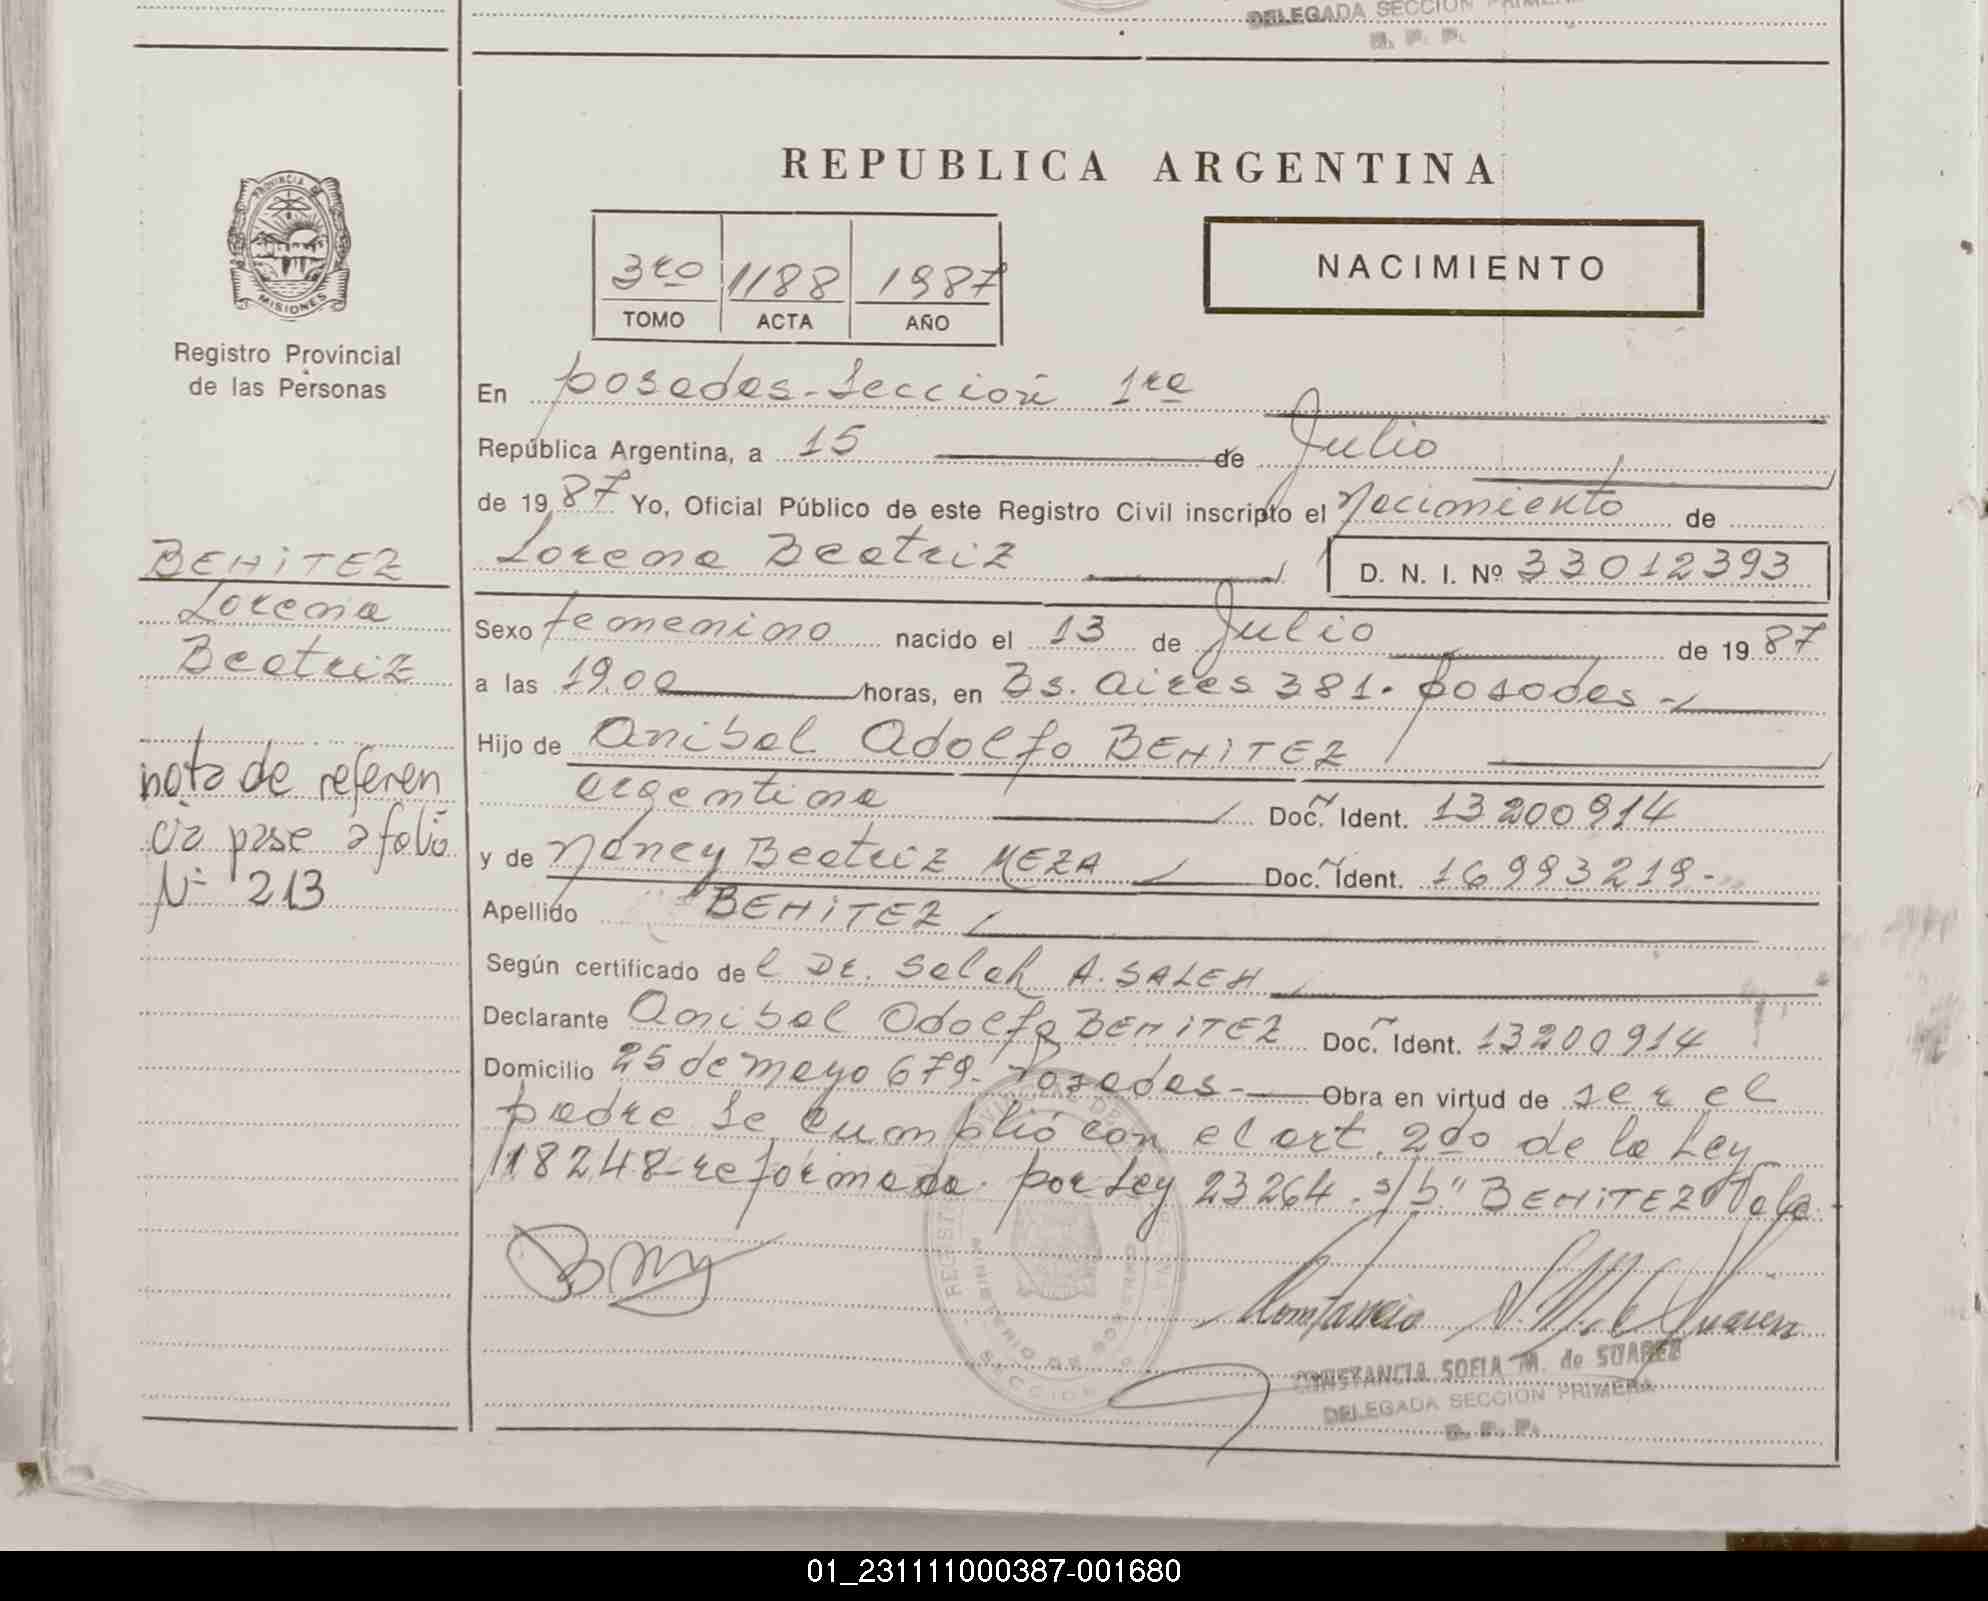 DELEGADA SECCION PRIMERA
R. P. P.
REPUBLICA ARGENTINA
PROVINCIA DE
MISIONES
Registro Provincial
de las Personas
3ro 1188 1987
TOMO ACTA AÑO
NACIMIENTO
En posadas-Sección 1ra
República Argentina, a 15 de Julio
de 1987 Yo, Oficial Público de este Registro Civil inscripto el Nacimiento de
Lorena Beatriz D. N. I. Nº 33012393
Sexo femenino nacido el 13 de Julio de 1987
a las 19.00 horas, en Bs. aires 381. posadas -
Hijo de Anibal Adolfo BENITEZ
argentina Doc. Ident. 13200914
y de Nancy Beatriz MEZA Doc. Ident. 16993219.-
Apellido BENITEZ
Según certificado del Dr. Saleh A. SALEH
Declarante Anibal Adolfo BENITEZ Doc. Ident. 13200914
Domicilio 25 de mayo 679- Posadas- Obra en virtud de ser el
padre Se cumplió con el art. 2do de la Ley
18248-reformada por Ley 23264. s/b" BENITEZ" Vale.
BENITEZ
Lorena
Beatriz
nota de referen
cia pase a folio
Nº 213
CONSTANCIA SOFIA M. de SUAREZ
DELEGADA SECCION PRIMERA
R. P. P.
01_231111000387-001680